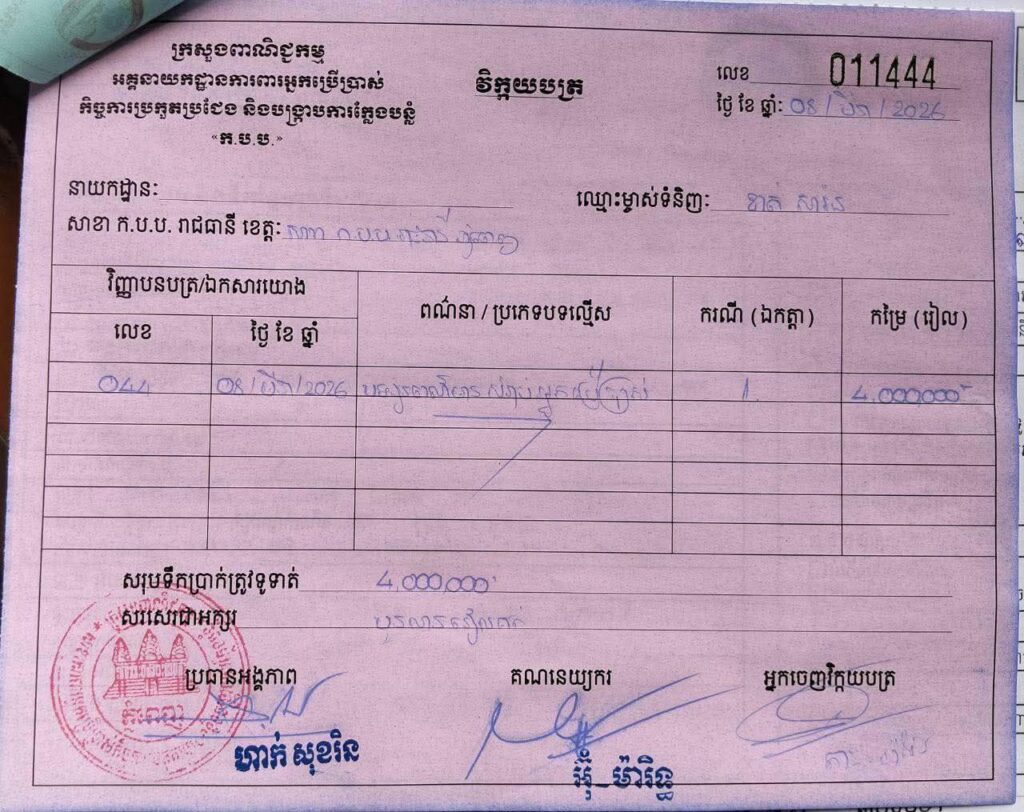 ក្រសួងពាណិជ្ជកម្ម
អគ្គនាយកដ្ឋានការពារអ្នកប្រើប្រាស់
កិច្ចការប្រកួតប្រជែង និងបង្ក្រាបការក្លែងបន្លំ
“ក.ប.ប.”
វិក្កយបត្រ
លេខ 011444
ថ្ងៃ ខែ ឆ្នាំ: 08 / មីនា / 2026
នាយកដ្ឋាន:
ឈ្មោះម្ចាស់ទំនិញ:
សាខា ក.ប.ប. រាជធានី ខេត្ត: សាខា ក.ប.ប រាជធានី ភ្នំពេញ
វិញ្ញាបនបត្រ/ឯកសារយោង
ពណ៌នា / ប្រភេទបទល្មើស
ករណី (ឯកត្តា)
កម្រៃ (រៀល)
លេខ
ថ្ងៃ ខែ ឆ្នាំ
044 08 / មីនា / 2026 អ្នកប្រើប្រាស់ 1. 4.000,000
សរុបទឹកប្រាក់ត្រូវទូទាត់ 4,000,000
សរសេរជាអក្សរ បួនលានរៀលគត់
ប្រធានអង្គភាព
គណនេយ្យករ
អ្នកចេញវិក្កយបត្រ
ភ្នំពេញ
ហាក់ សុខរិន
អ៊ុំ_ម៉ារិទ្ធ